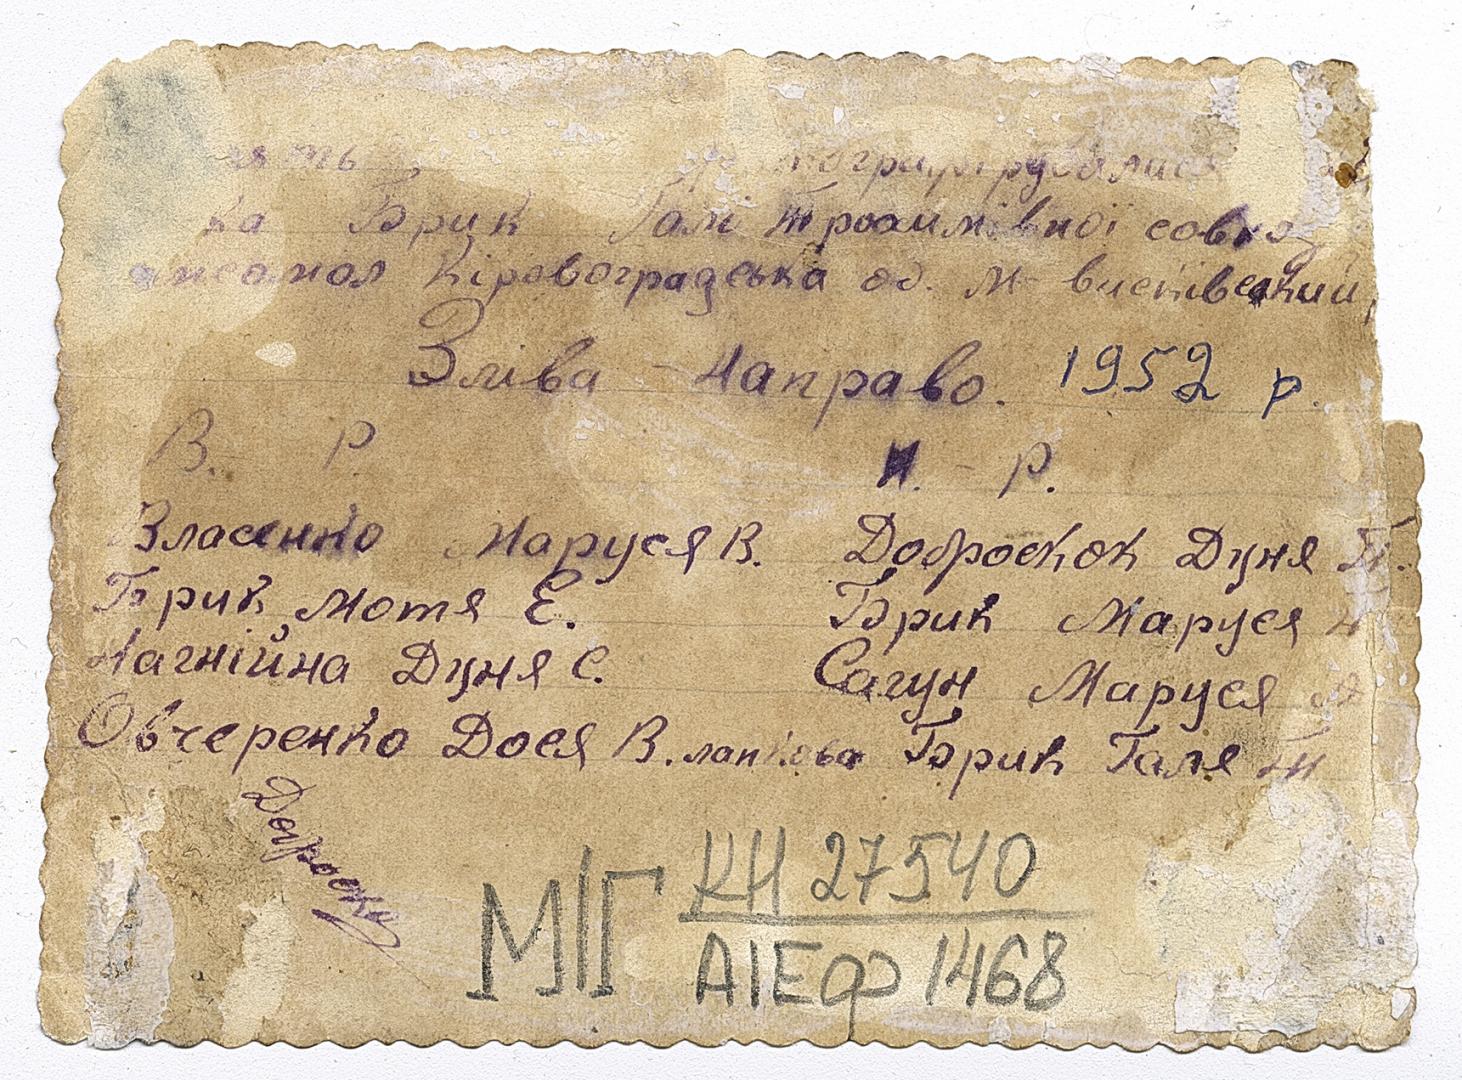 ять тографірувалися
ка Брик Галі Трохимівної совхоз
Кіровоградська об. М висківський
Зліва Направо. 1952 р.
В. Р. Н. - Р.
Власенко Маруся В. Доброскок Дуня П.
Брик Мотя Е. Брик Маруся
Нагнійна Дуня С. Сагун Маруся
Овчеренко Дося В. Брик Галя Т
Доброск
МІГ КН 27540
АІЕф 1468